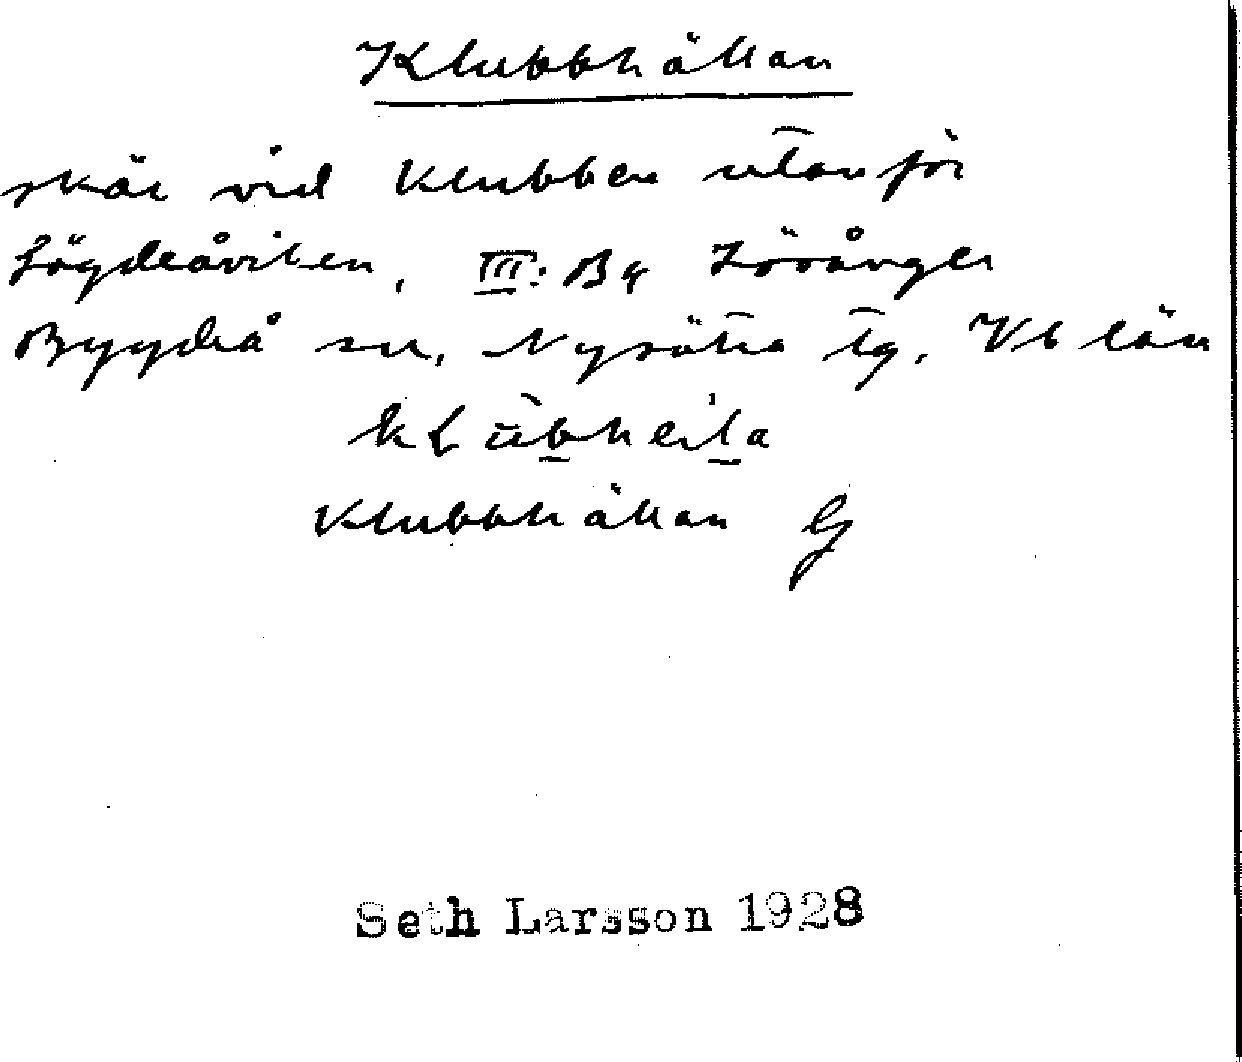 Klubbhällan
skär vid Klubben utanför
Lögdeåviken, III: By
Bygdeå sn, Nysätra tg. Vb län
Klubbhällan G
Seth Larsson 1928